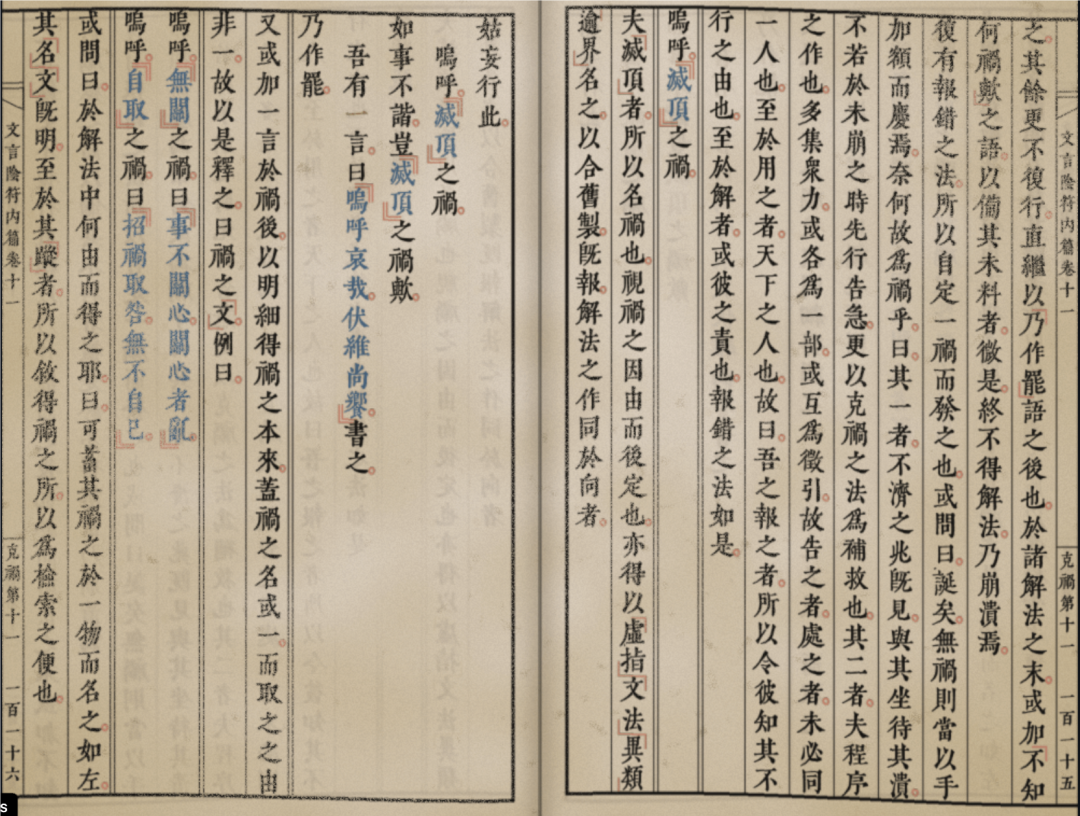 之其餘更不復行直繼以乃作罷語之後也於諸解法之末或加不知
何禍歟之語以備其未料者徵是終不得解法乃崩潰焉
復有報錯之法所以自定一禍而發之也或問曰誕矣無禍則當以手
加額而慶焉奈何故為禍乎曰其一者不濟之兆既見與其坐待其潰
不若於未崩之時先行告急更以克禍之法為補救也其二者夫程序
之作也多集衆力或各為一部或互為徵引故告之者處之者未必同
一人也至於用之者天下之人也故曰吾之報之者所以令彼知其不
行之由也至於解者或彼之責也報錯之法如是
嗚呼滅頂之禍
夫滅頂者所以名禍也視禍之因由而後定也亦得以虛指文法異類
逾界名之以合舊製既報解法之作同於向者
文言陰符內篇卷十一
克禍第十一
一百一十五
姑妄行此
嗚呼滅頂之禍
如事不諧豈滅頂之禍歟
吾有一言曰嗚呼哀哉伏維尚饗書之
乃作罷
又或加一言於禍後以明細得禍之本來蓋禍之名或一而取之之由
非一故以是釋之曰禍之文例曰
嗚呼無關之禍曰事不關心關心者亂
嗚呼自取之禍曰招禍取咎無不自己
或問曰於解法中何由而得之耶曰可蓄其禍之於一物而名之如左
其名文既明至於其蹤者所以敘得禍之所以為檢索之便也
文言陰符內篇卷十一
克禍第十一
一百一十六
s